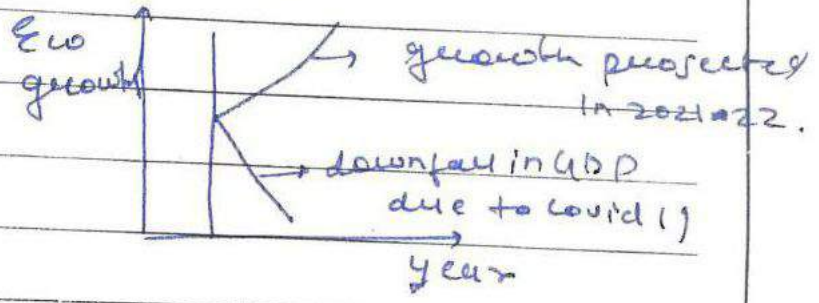 Eco
growth
→ growth projected
in 2021-22.
→ downfall in GDP
due to covid 19
year